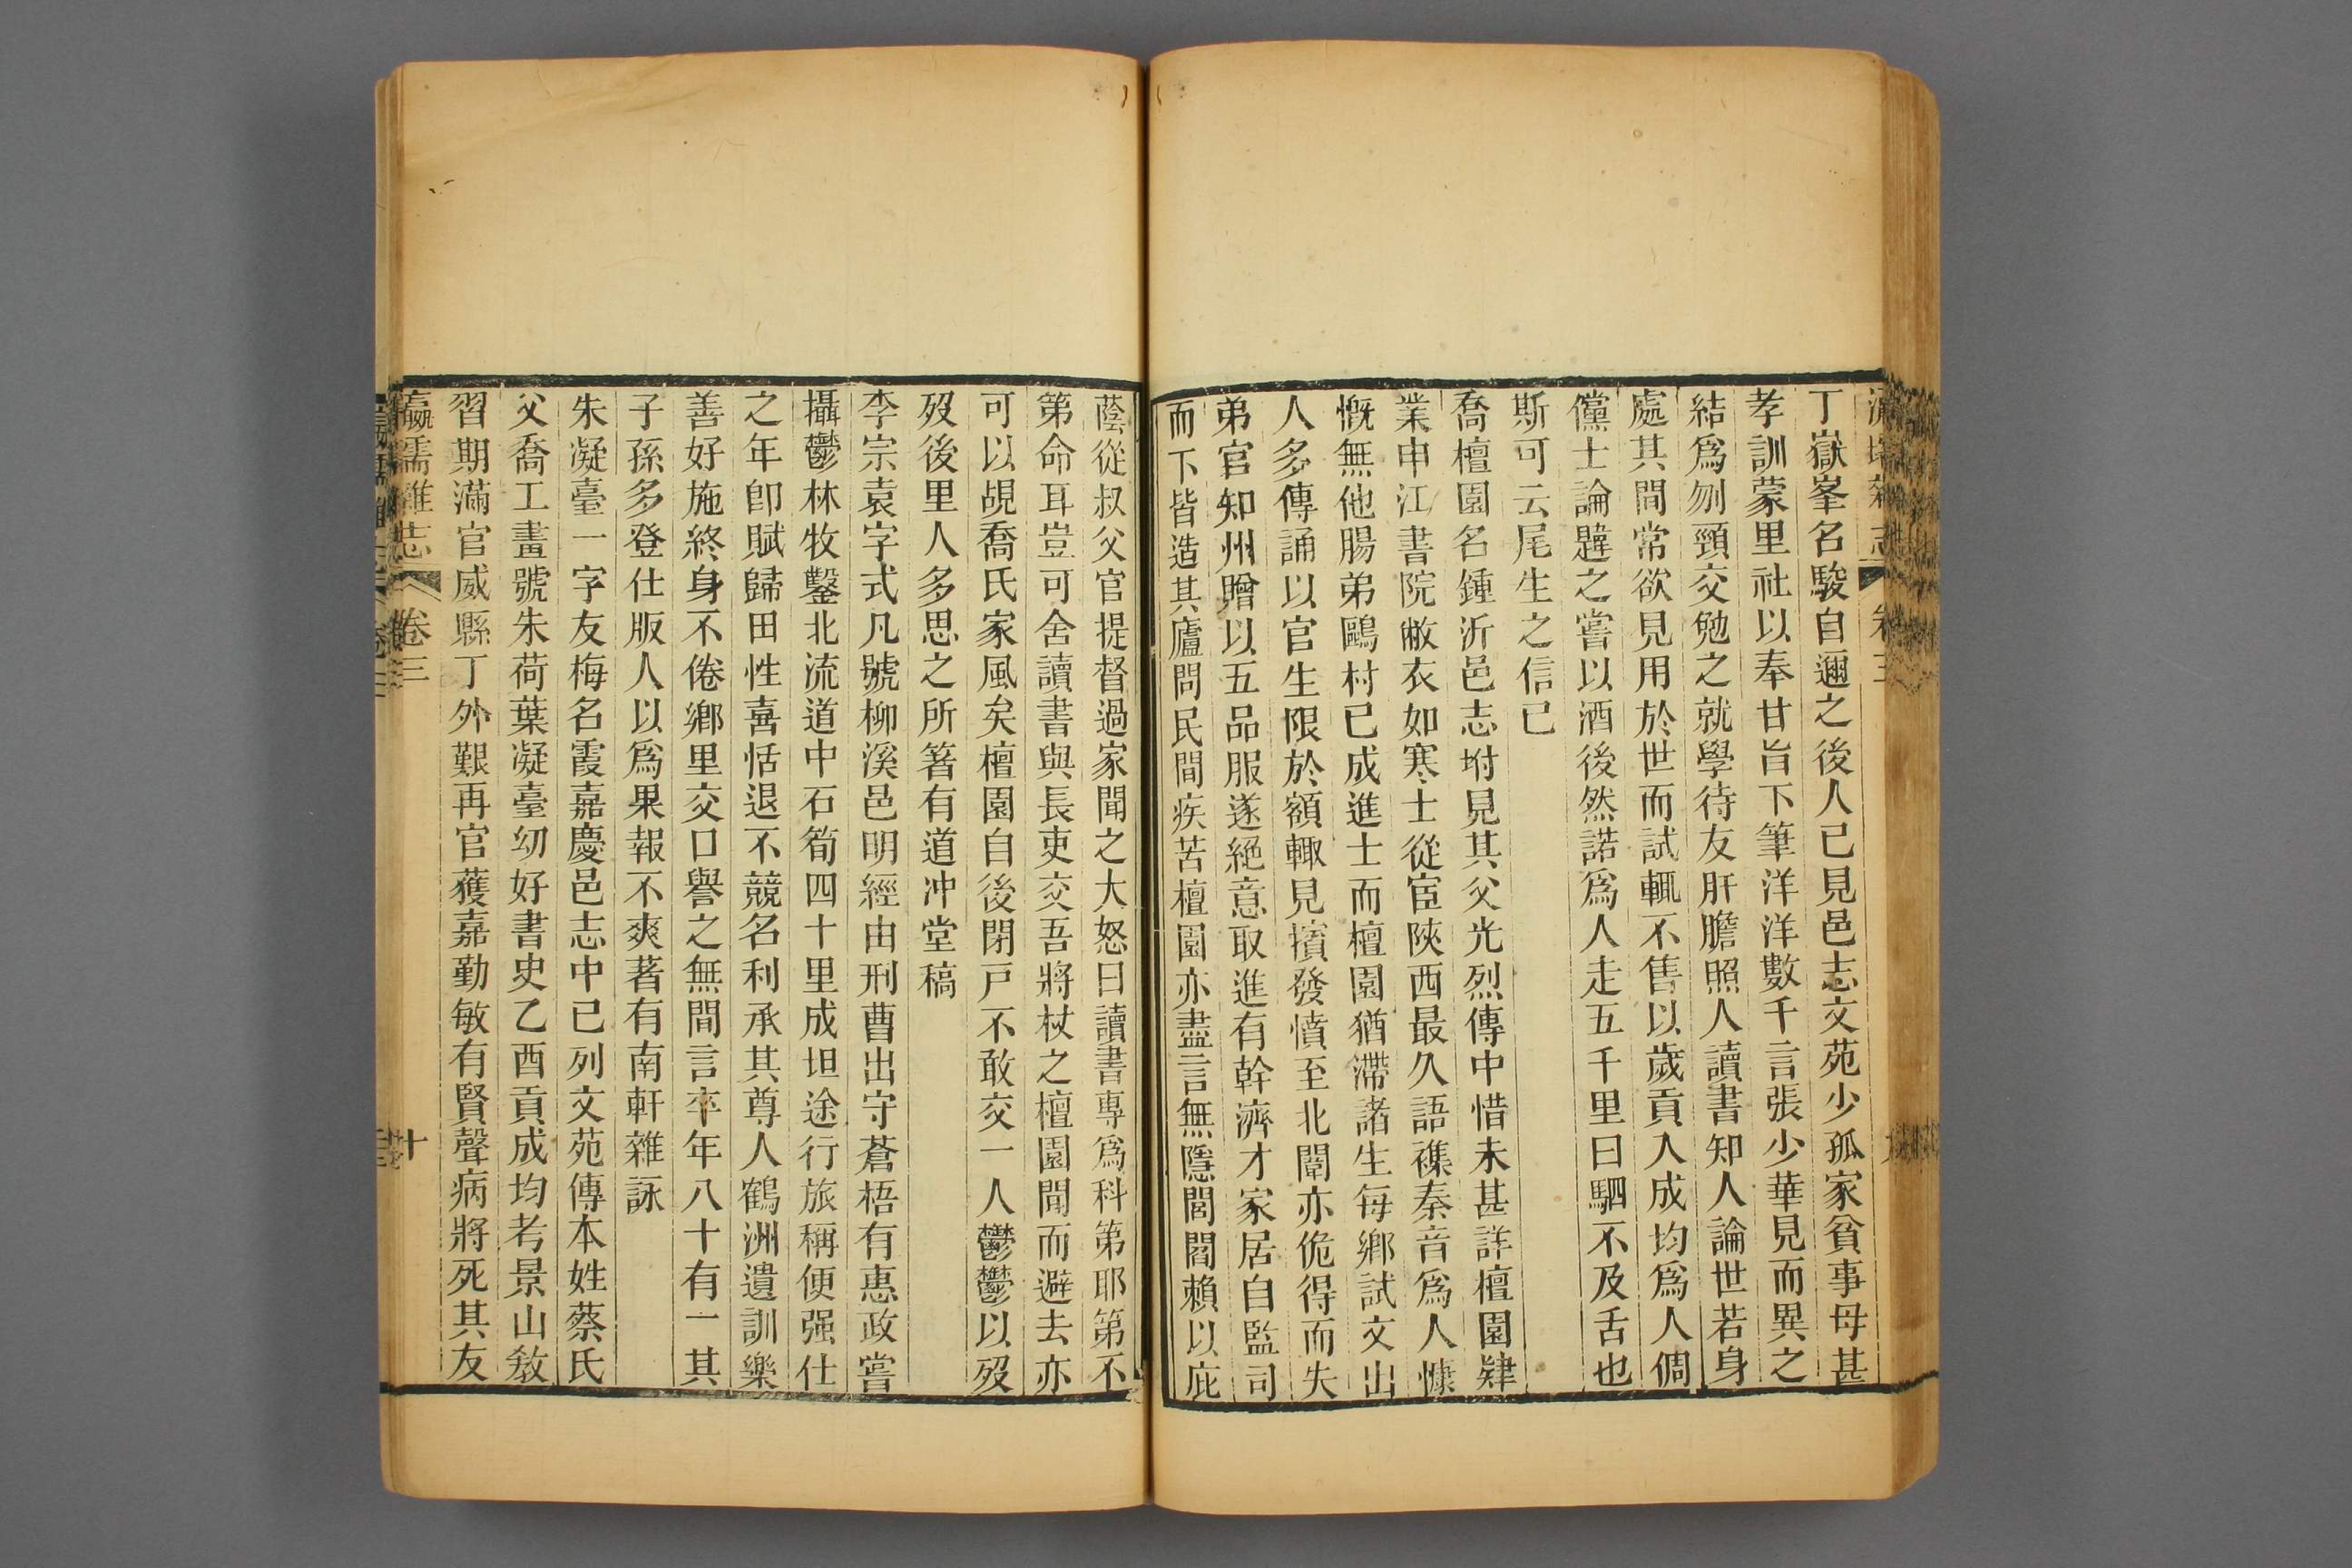 丁嶽峯名駿自邇之後人已見邑志文苑少孤家貧事母甚
孝訓蒙里社以奉甘旨下筆洋洋數千言張少華見而異之
結爲刎頸交勉之就學待友肝膽照人讀書知人論世若身
處其間常欲見用於世而試輒不售以歲貢入成均爲人倜
儻士論韙之嘗以酒後然諾爲人走五千里曰駟不及舌也
斯可云尾生之信已
喬檀園名鍾沂邑志坿見其父光烈傳中惜未甚詳檀園肄
業申江書院敝衣如寒士從宦陝西最久語襍秦音爲人慷
慨無他腸弟鷗村已成進士而檀園猶滯諸生每鄉試文出
人多傳誦以官生限於額輙見擯發憤至北闈亦佹得而失
弟官知州贈以五品服遂絕意取進有幹濟才家居自監司
而下皆造其廬問民間疾苦檀園亦盡言無隱閭閻賴以庇
蔭從叔父官提督過家聞之大怒曰讀書專爲科第耶第不
第命耳豈可舍讀書與長吏交吾將杖之檀園聞而避去亦
可以覘喬氏家風矣檀園自後閉戸不敢交一人鬱鬱以歿
歿後里人多思之所箸有道冲堂稿
李宗袁字式凡號柳溪邑明經由刑曹出守蒼梧有惠政嘗
攝鬱林牧鑿北流道中石筍四十里成坦途行旅稱便强仕
之年卽賦歸田性喜恬退不競名利承其尊人鶴洲遺訓樂
善好施終身不倦鄉里交口譽之無間言卒年八十有一其
子孫多登仕版人以爲果報不爽著有南軒雜詠
朱凝臺一字友梅名霞嘉慶邑志中已列文苑傳本姓蔡氏
父喬工畫號朱荷葉凝臺幼好書史乙酉貢成均考景山敎
習期滿官威縣丁外艱再官獲嘉勤敏有賢聲病將死其友
瀛壖雜志 卷三 十